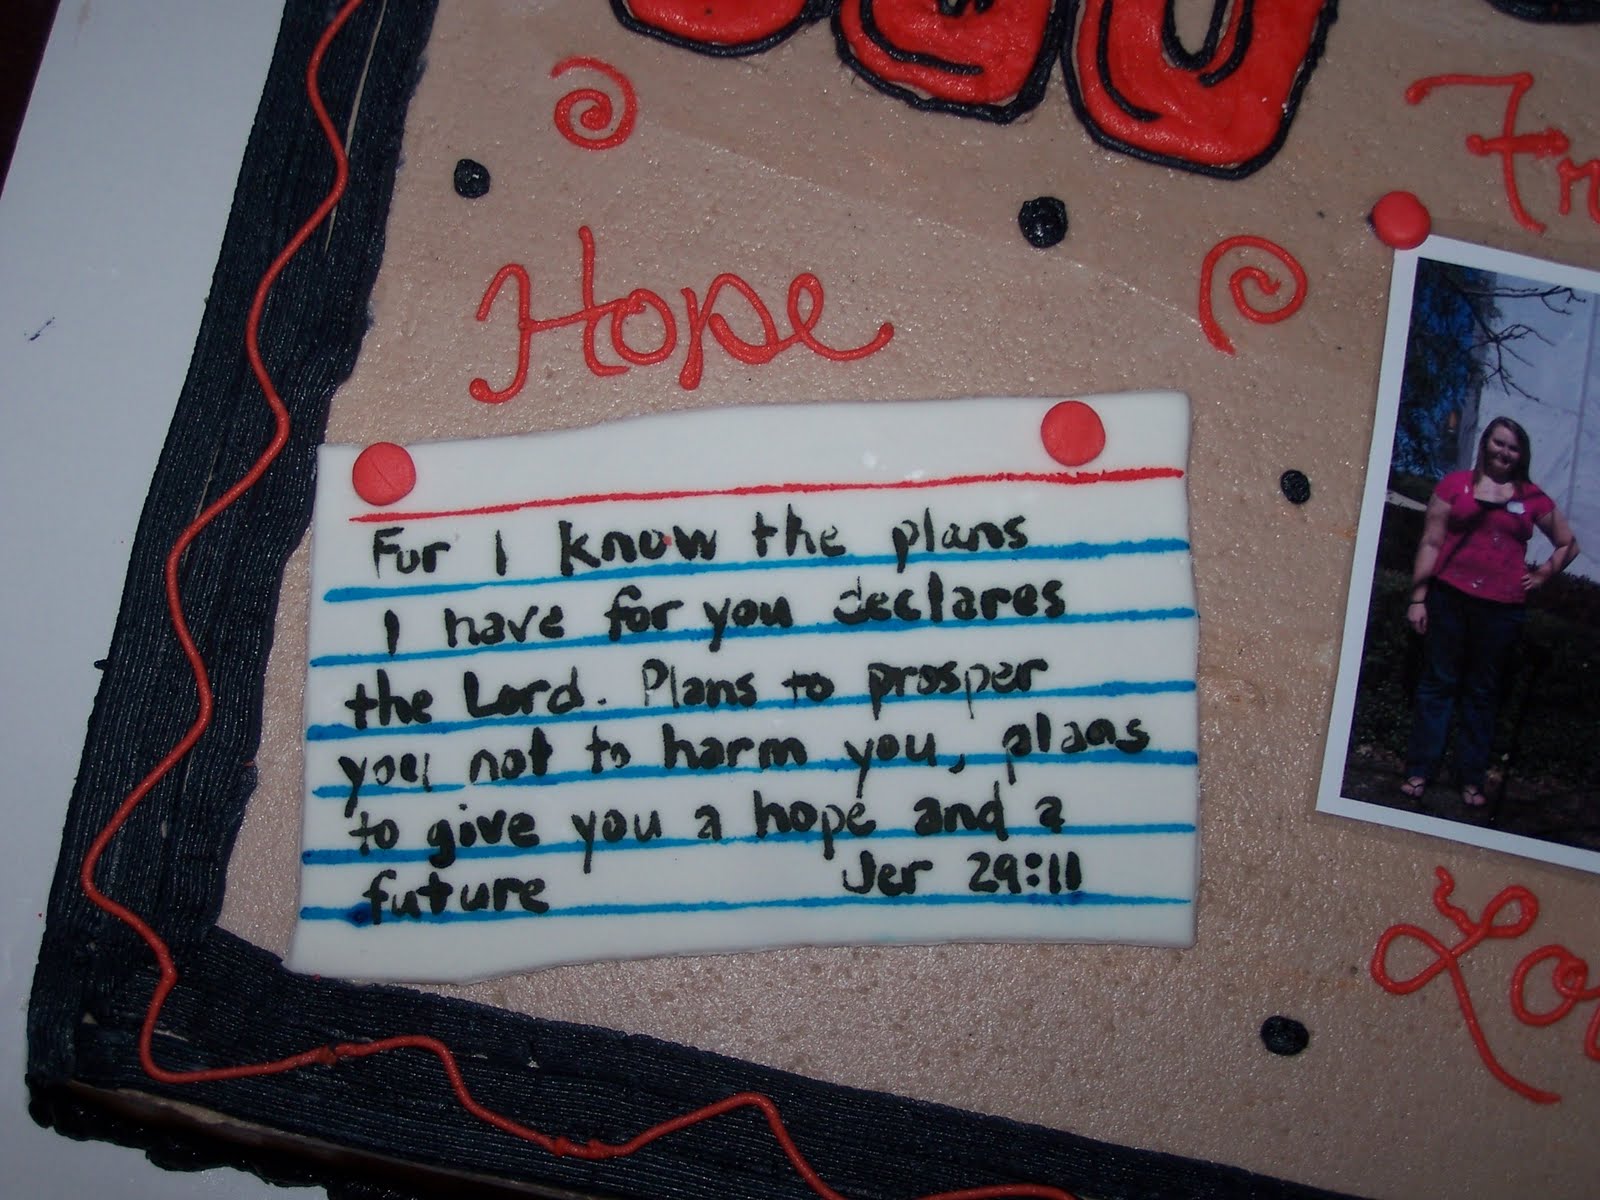 Hope
For I know the plans
I have for you declares
the Lord. Plans to prosper
you, not to harm you, plans
to give you a hope and a
future Jer 29:11